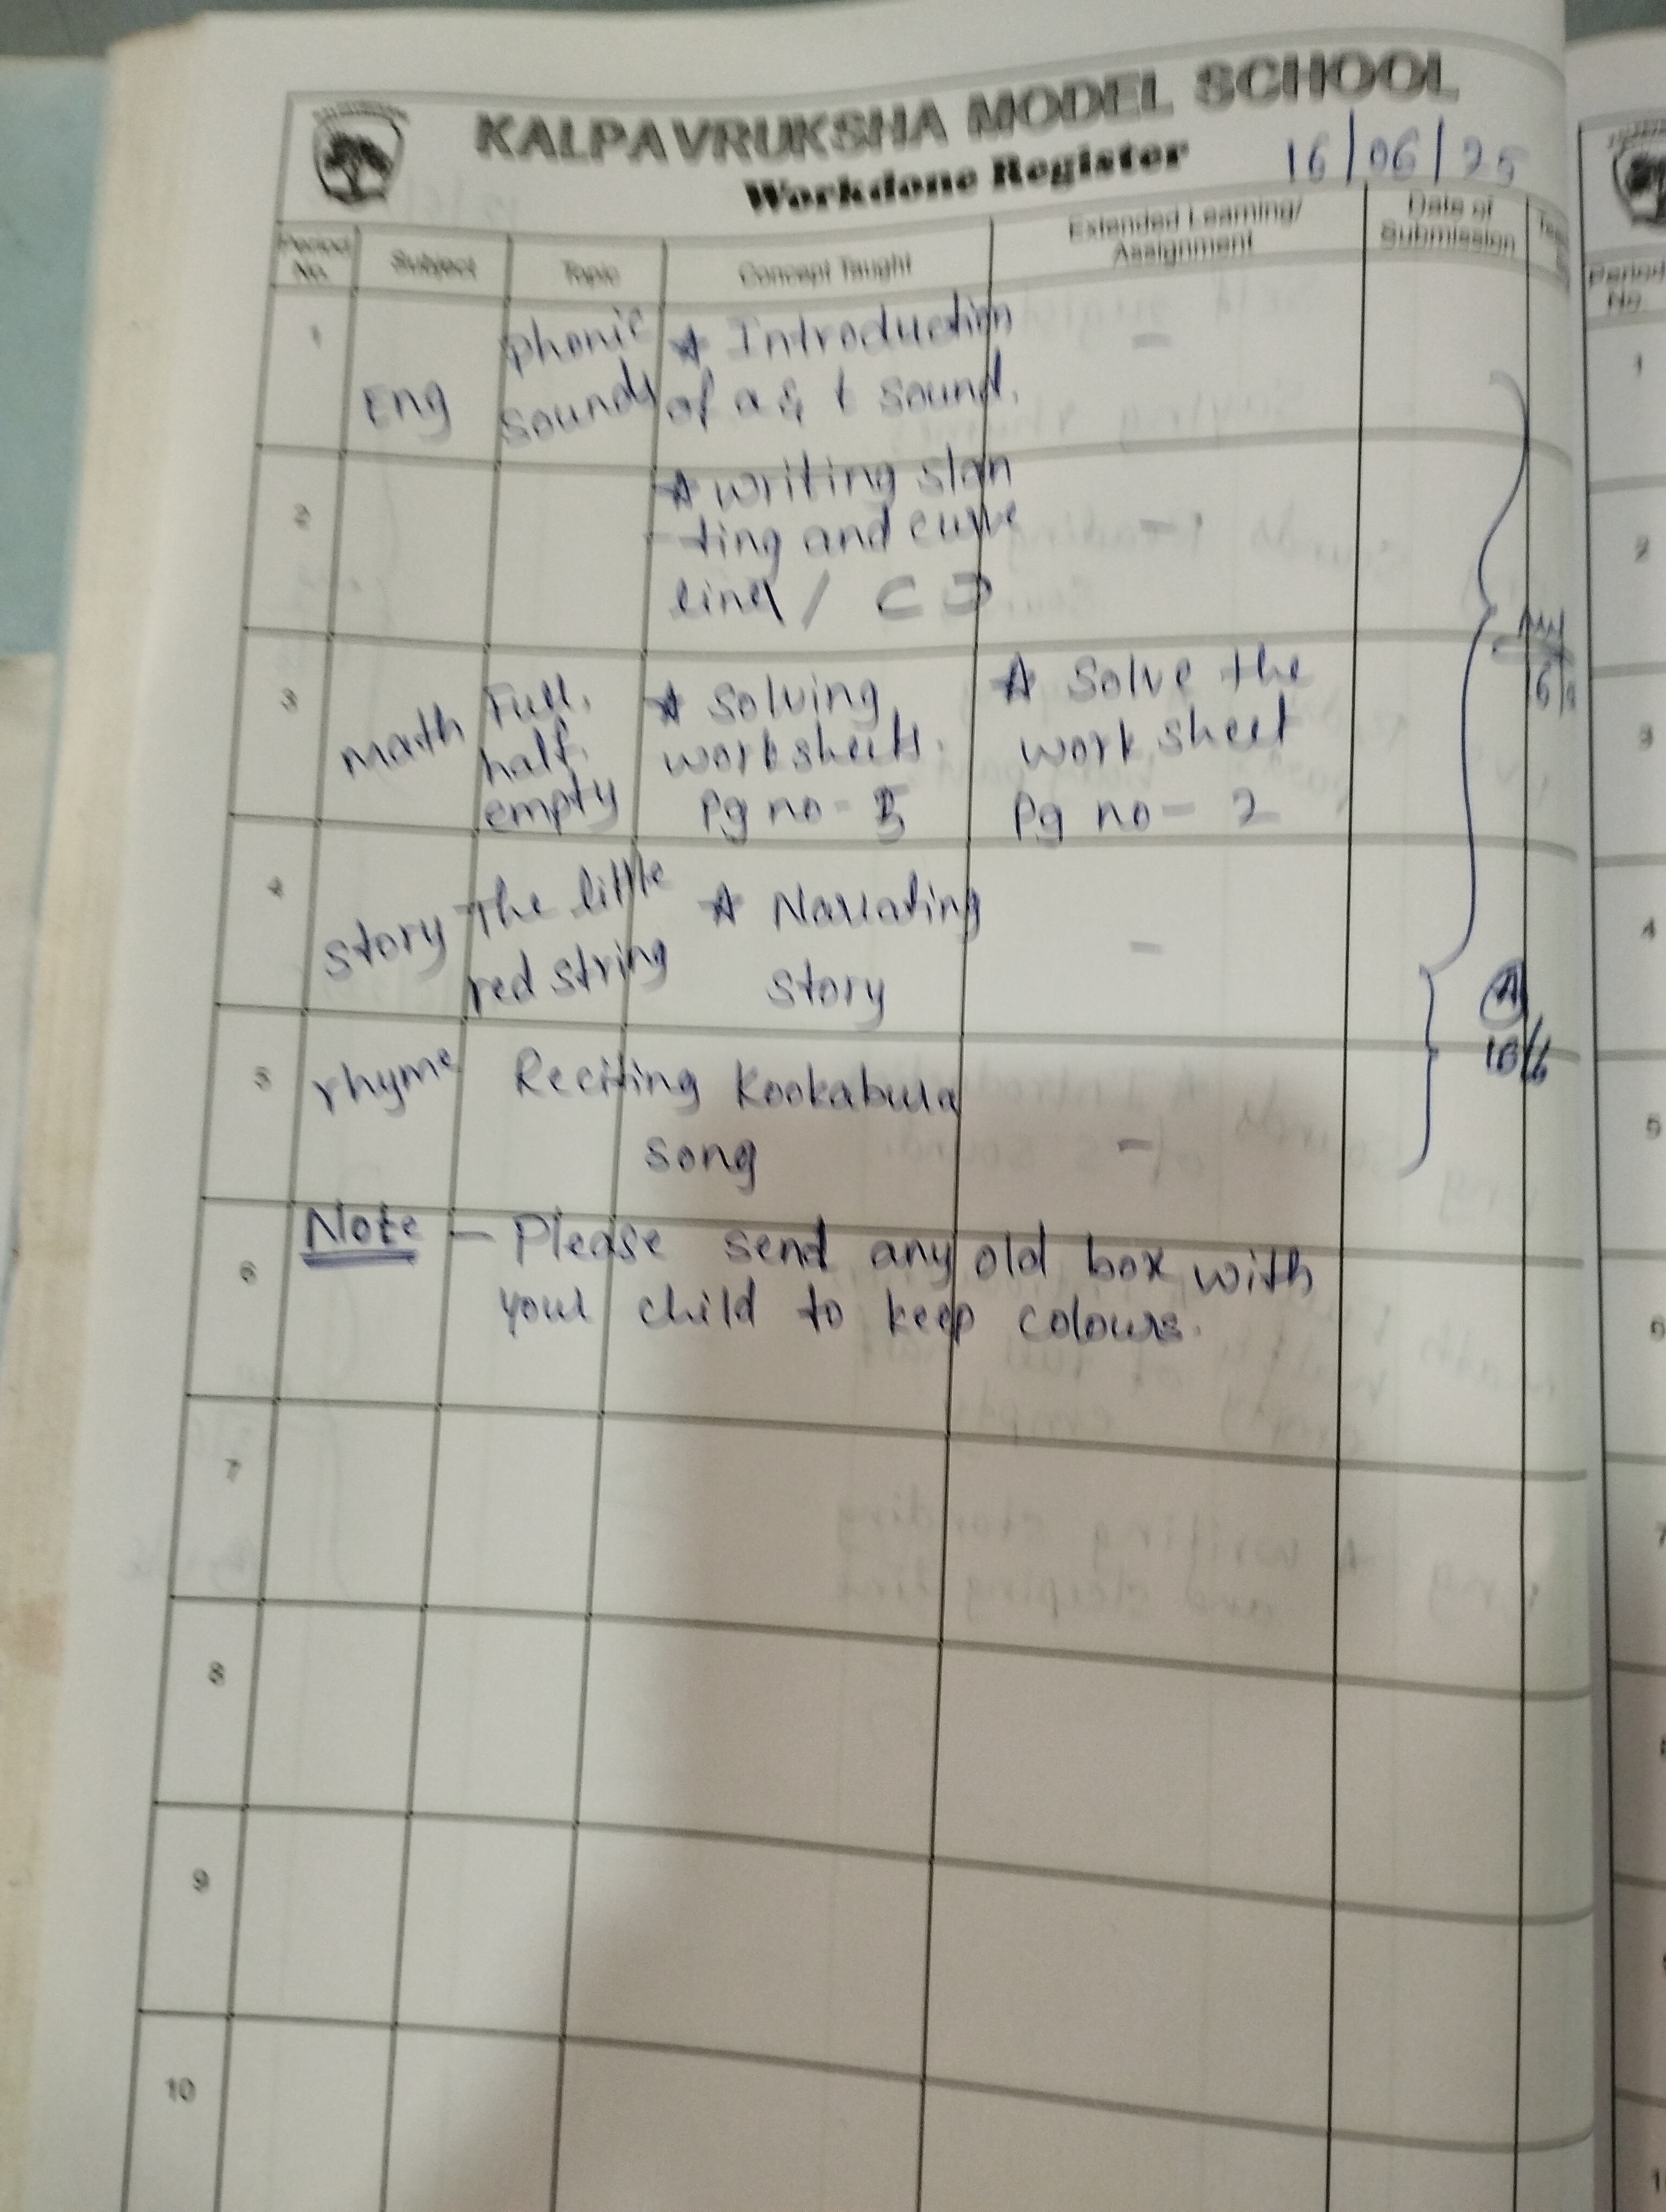 KALPAVRUKSHA MODEL SCHOOL
Workdone Register
16/06/25
Period No.
Subject
Topic
Concept Taught
Extended Learning/
Assignment
Date of
Submission
1
Eng
phonic
sounds
★ Introduction
of a & t sound.
-
2
★ writing slan
-ting and curve
line / ⊂ ⊃
-
3
math
Full,
half,
empty
★ solving
worksheets.
Pg no -
★ Solve the
work sheet
Pg no - 2
4
story
The little
red string
★ Narrating
story
-
5
rhyme
Reciting Kookabura
song
-
6
Note - Please send any old box with
your child to keep colours.
7
8
9
10
A
16/6
Period
No.
1
2
3
4
5
6
7